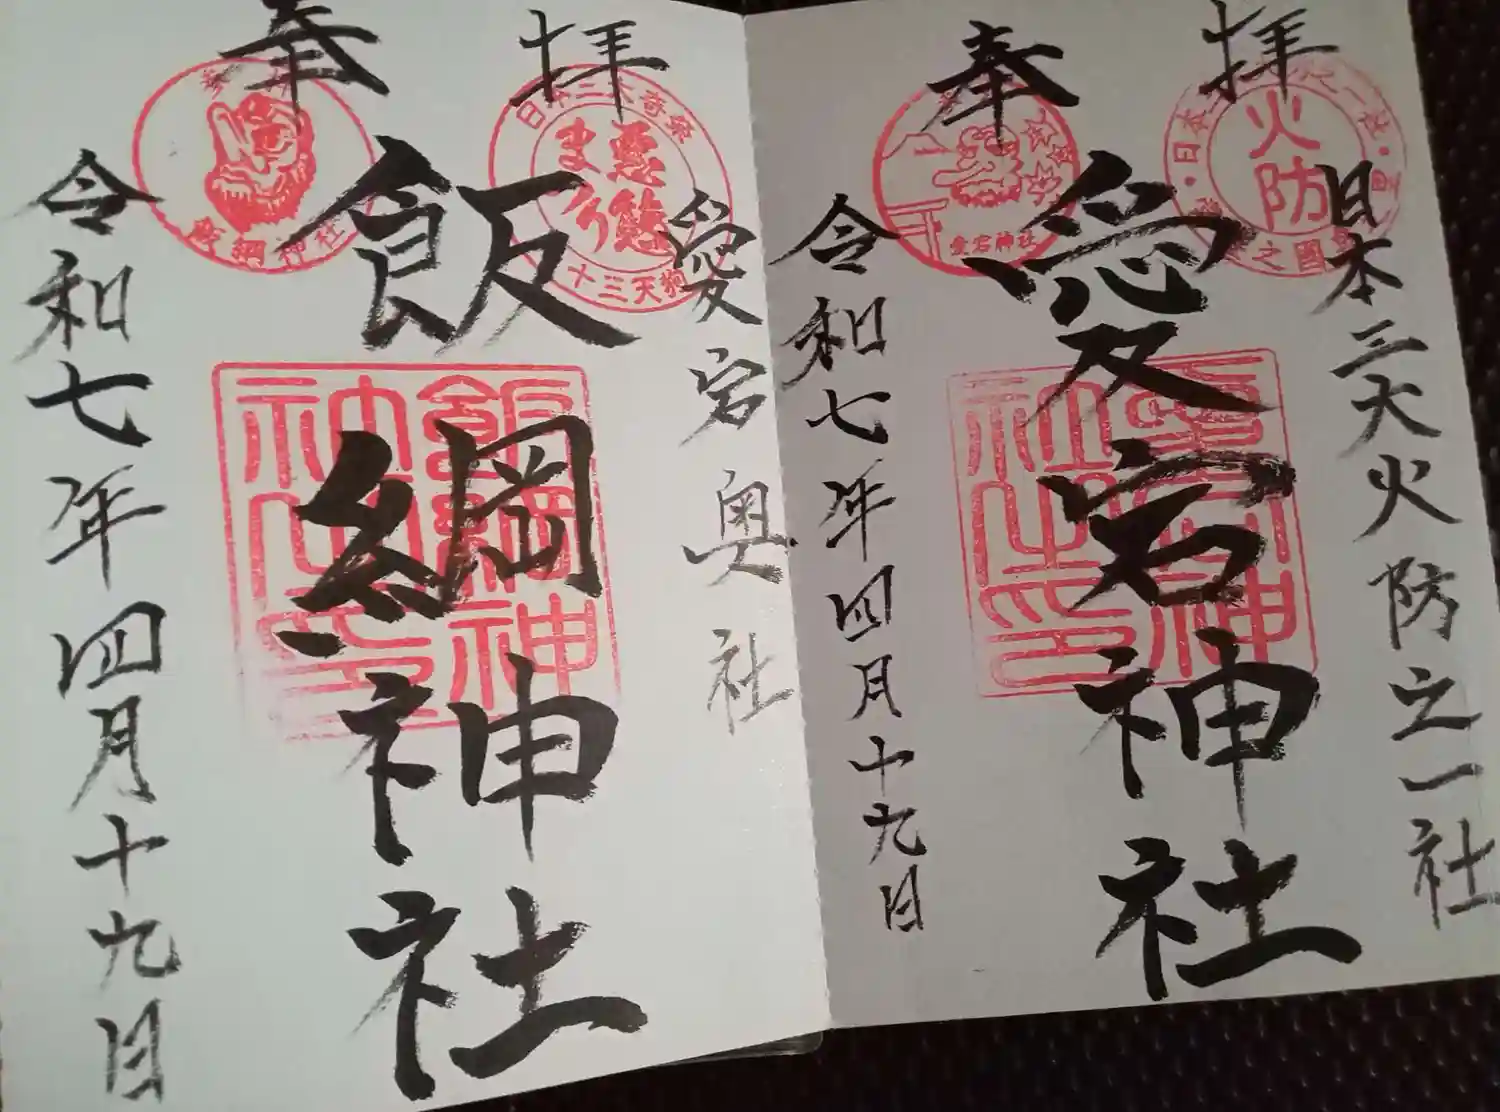 奉拝
日本三大火防之一社
愛宕神社
令和七年四月十九日
火防
愛宕神社
奉拝
愛宕奥社
飯綱神社
令和七年四月十九日
日本三大奇祭
悪態
まつり
十三天狗
飯綱神社
飯綱神社之印